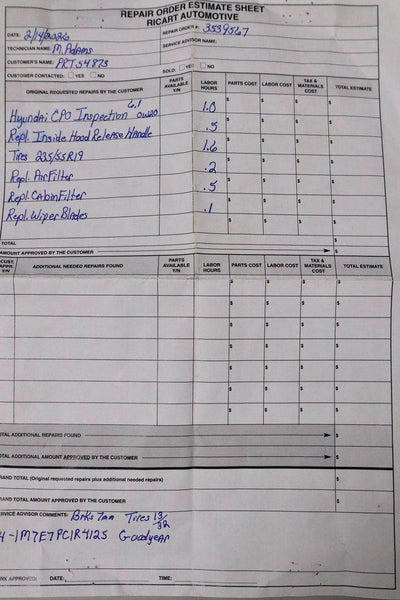 REPAIR ORDER ESTIMATE SHEET
RICART AUTOMOTIVE
DATE: 2/4/2026 REPAIR ORDER #: 3539567
TECHNICIAN NAME: M. Adams SERVICE ADVISOR NAME:
CUSTOMER'S NAME: PRT54873
CUSTOMER CONTACTED: YES NO SOLD: YES NO
ORIGINAL REQUESTED REPAIRS BY THE CUSTOMER PARTS AVAILABLE Y/N LABOR HOURS PARTS COST LABOR COST TAX & MATERIALS COST TOTAL ESTIMATE
Hyundai CPO Inspection 6.1 0W20 1.0 $ $ $ $
Repl. Inside Hood Release Handle .5 $ $ $ $
Tires 235/55R19 1.6 $ $ $ $
Repl. Air Filter .2 $ $ $ $
Repl. Cabin Filter .5 $ $ $ $
Repl. Wiper Blades .1 $ $ $ $
TOTAL
AMOUNT APPROVED BY THE CUSTOMER $
CUST. APPR. Y/N ADDITIONAL NEEDED REPAIRS FOUND PARTS AVAILABLE Y/N LABOR HOURS PARTS COST LABOR COST TAX & MATERIALS COST TOTAL ESTIMATE
$ $ $ $
$ $ $ $
$ $ $ $
$ $ $ $
$ $ $ $
$ $ $ $
$ $ $ $
TOTAL ADDITIONAL REPAIRS FOUND $
TOTAL ADDITIONAL AMOUNT APPROVED BY THE CUSTOMER $
GRAND TOTAL (Original requested repairs plus additional needed repairs) $
GRAND TOTAL AMOUNT APPROVED BY THE CUSTOMER $
SERVICE ADVISOR COMMENTS: Brks 7mm Tires 13/32
4-1M7E7PC1R4125 Goodyear
WORK APPROVED: DATE: TIME: